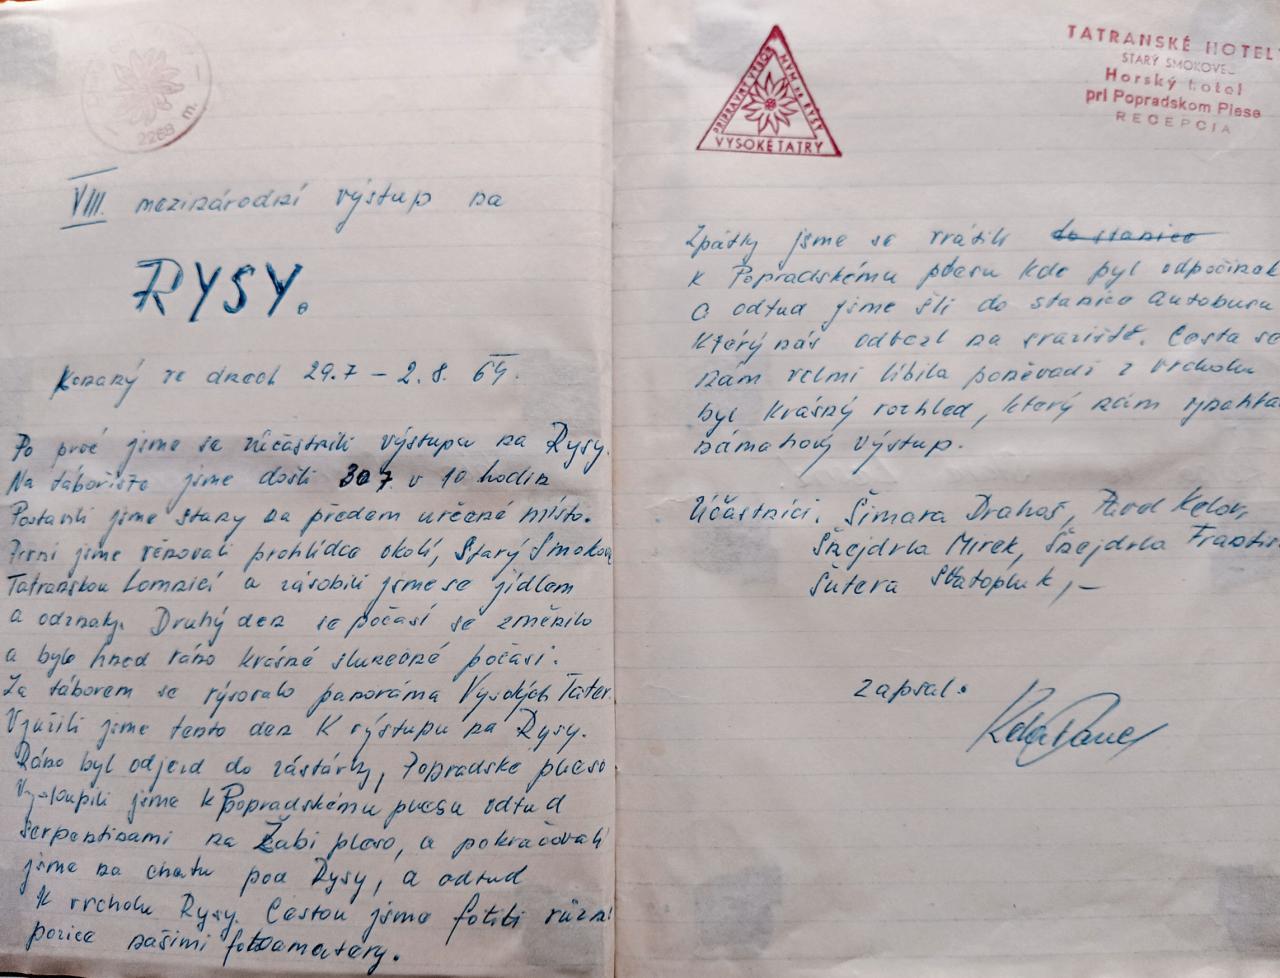 2268 m.
VIII. mezinárodní výstup na
RYSY.
Konaný ve dnech 29.7 – 2.8. 69.
Po prvé jsme se zúčastnili výstupu na Rysy.
Na tábořiště jsme došli 30 7. v 10 hodin
Postavili jsme stany na předem určené místo.
První jsme věnovali prohlídce okolí, Starý Smokov
Tatranskou Lomnicí a zásobili jsme se jídlem
a odznaky. Druhý den se počasí se změnilo
a bylo hned ráno krásné slunečné počasí.
Za táborem se rýsovalo panoráma Vysokých Tater.
Využili jsme tento den K výstupu na Rysy.
Ráno byl odjezd do zástávky, Popradske pleso.
Vystoupili jsme k Popradskému plesu odtud
serpentinami na Žabí pleso, a pokračovali
jsme na chatu pod Rysy, a odtud
K vrcholu Rysy. Cestou jsme fotili různé
pozice našimi fotoamatery.
PRÍPRAVNÝ VÝBOR
MVM na RYSY
VYSOKÉ TATRY
TATRANSKÉ HOTELY
STARÝ SMOKOVEC
Horský hotel
pri Popradskom Plese
RECEPCIA
Zpátky jsme se vrátili do stanice
k Popradskému plesu kde byl odpočinek
a odtud jsme šli do stanice Autobusu
Který nás odvezl na sraziště. Cesta se
nám velmi líbila poněvadž z vrcholu
byl Krásný rozhled, který nám vynahra
námahový výstup.
Účastníci. Šimara Drahoš, Pavel Kelar,
Šnejdrla Mirek, Šnejdrla Františ.
Šutera Svatopluk, –
Zapsal.
Kelar Pavel